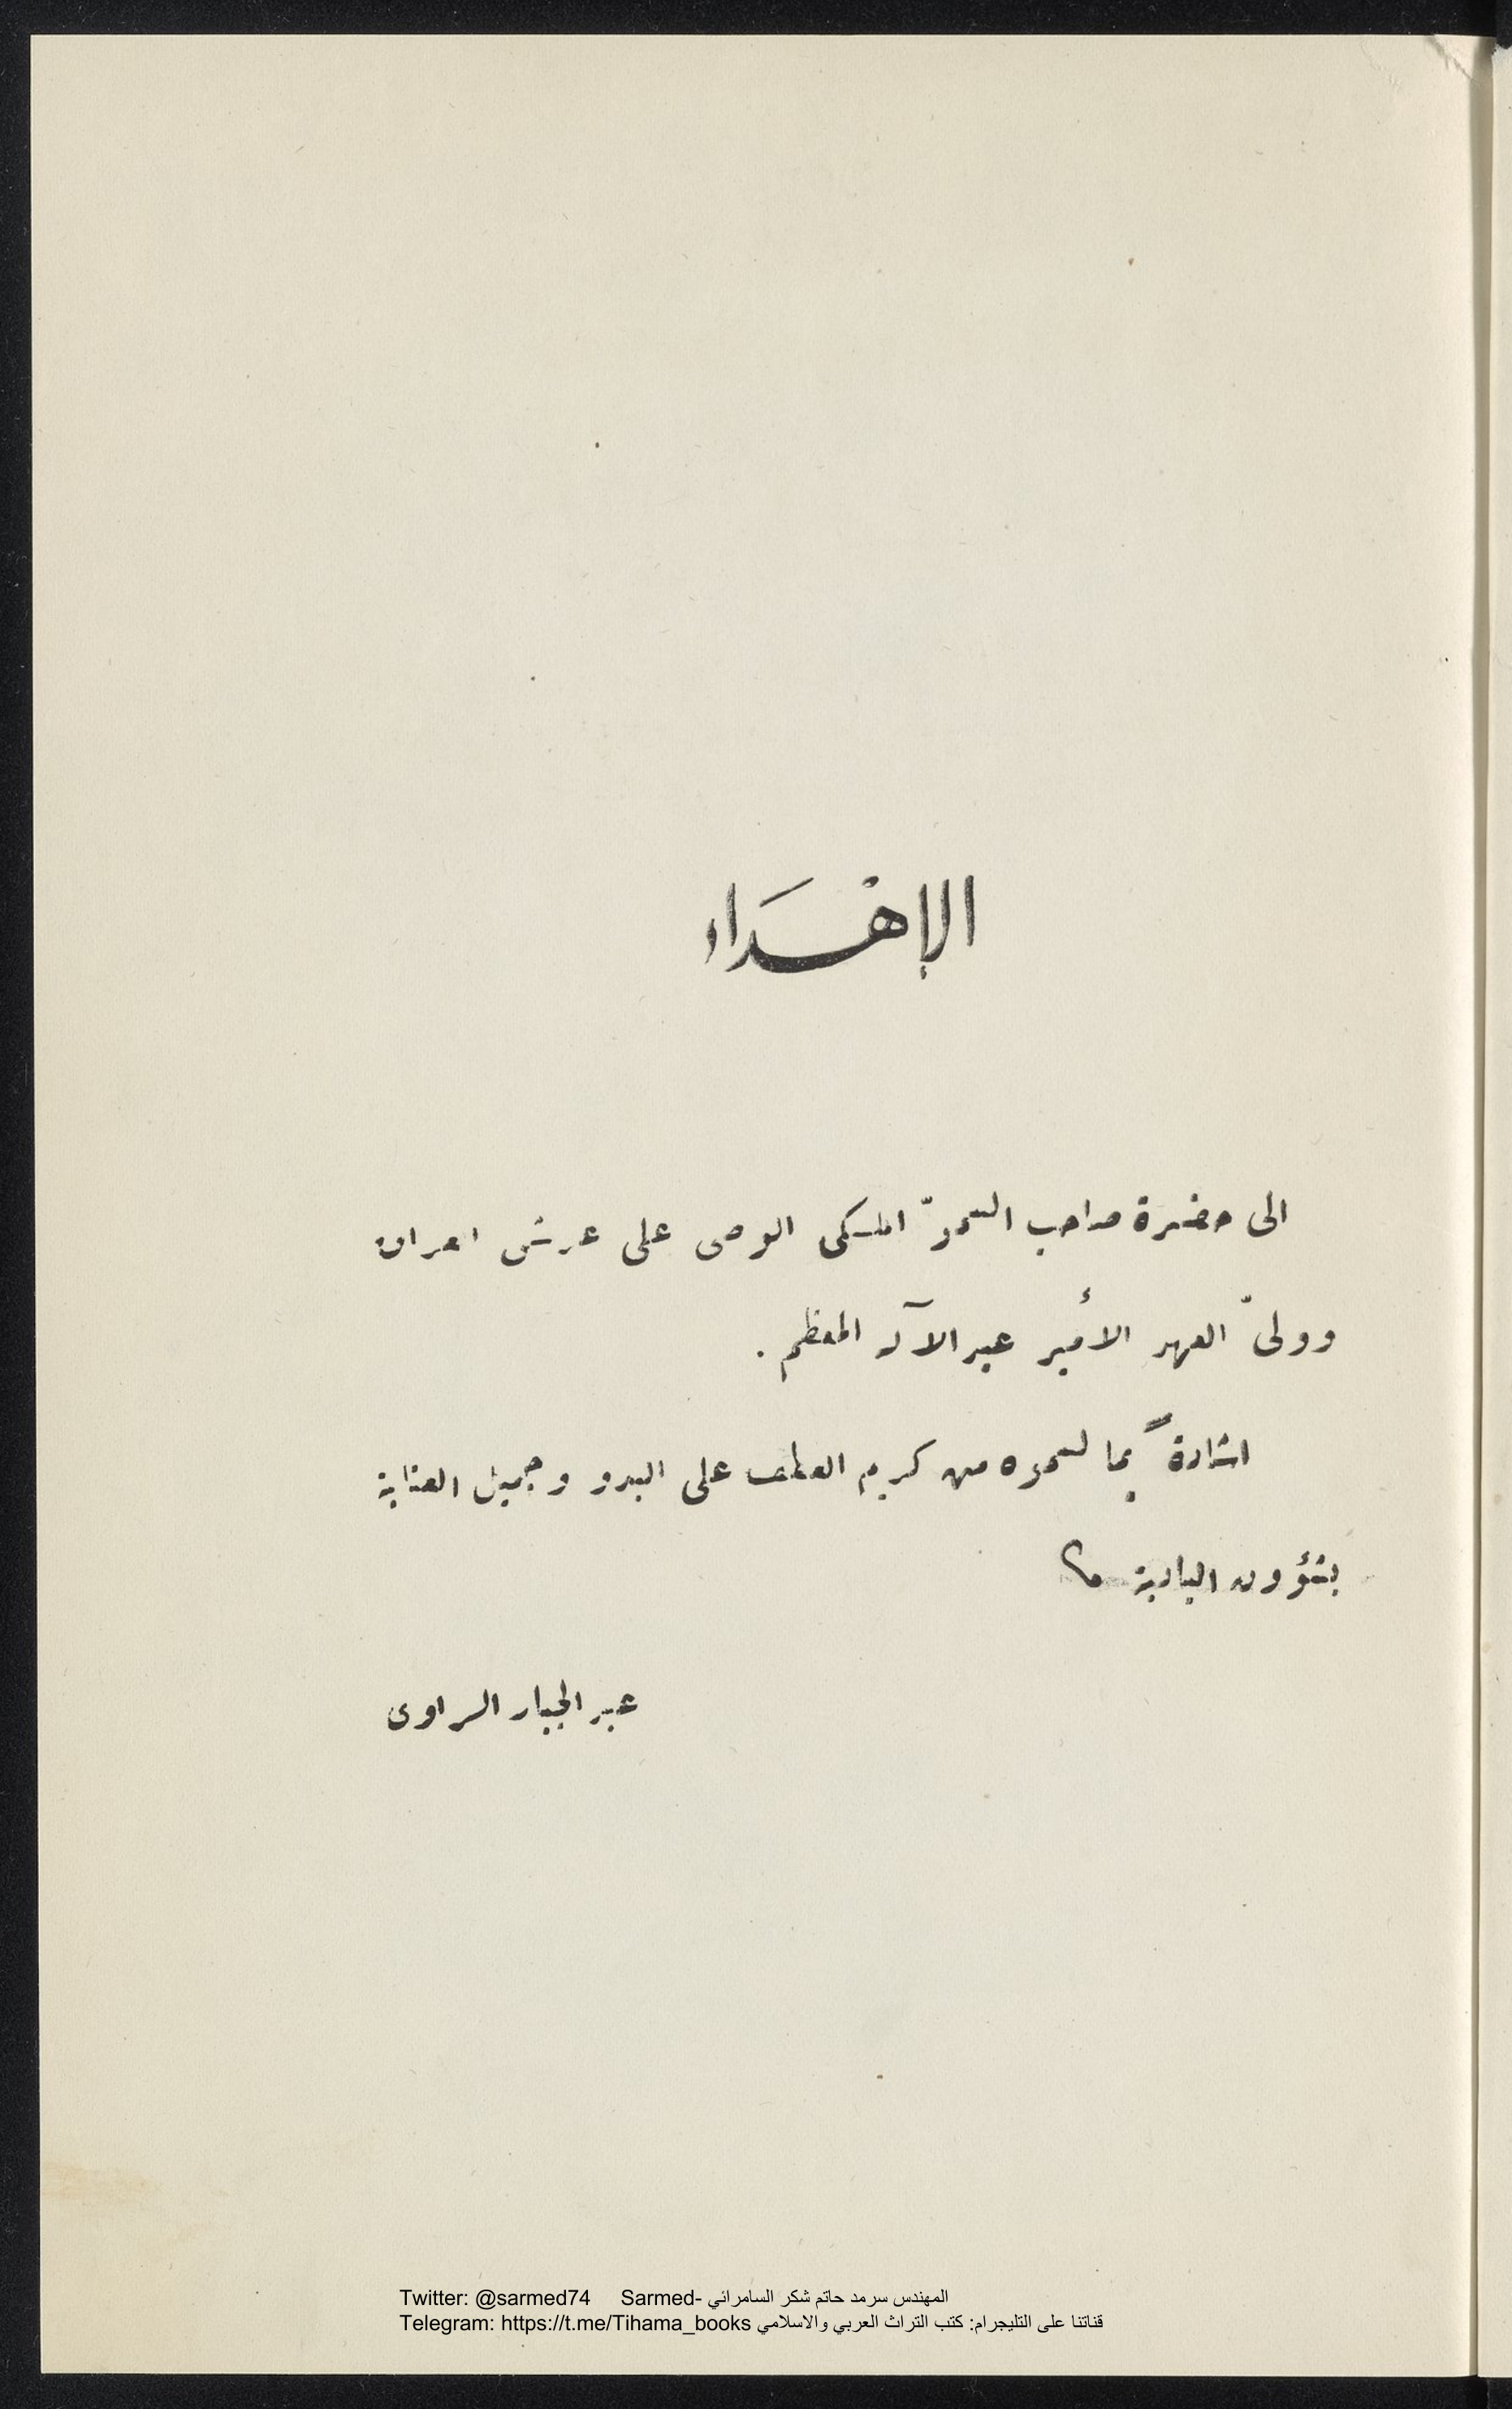 الإهْدَاء
الى حضرة صاحب السموّ الملكى الوصى على عرش العراق
وولىّ العهد الأمير عبد الآله المعظم .
اشادةً بما لسموه من كريم العطف على البدو وجميل العناية
بشؤون البادية
عبد الجبار الراوى
Twitter: @sarmed74 Sarmed- المهندس سرمد حاتم شكر السامرائي
Telegram: https://t.me/Tihama_books قناتنا على التليجرام: كتب التراث العربي والاسلامي